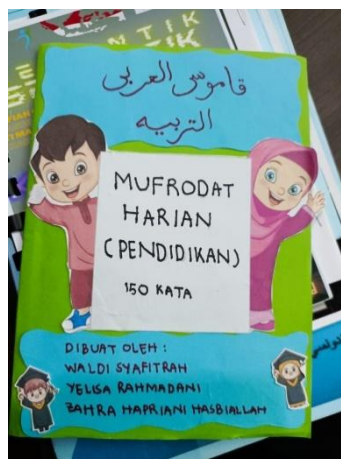 قاموس العربى
التربيه
MUFRODAT
HARIAN
(PENDIDIKAN)
150 KATA
DIBUAT OLEH :
WALDI SYAFITRAH
YELISA RAHMADANI
ZAHRA HAPRIANI HASBIALLAH